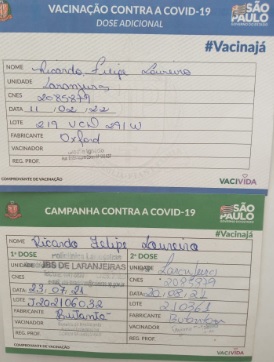 VACINAÇÃO CONTRA A COVID-19
DOSE ADICIONAL
SÃO PAULO
#Vacinajá
NOME Ricardo Felipe Loureiro
UNIDADE Laranjeiras
CNES 2085879
DATA 11 02 22
LOTE 219 VCD 291W
FABRICANTE Oxford
VACINADOR
REG. PROF.
COMPROVANTE DE VACINAÇÃO
VACIVIDA
CAMPANHA CONTRA A COVID-19
SÃO PAULO
#Vacinajá
NOME Ricardo Felipe Loureiro
1ª DOSE 2ª DOSE
UNIDADE UBS DE LARANJEIRAS UNIDADE
CNES CNES 2085879
DATA 23.07.21 DATA 20.08.21
LOTE J202106032 LOTE 210361
FABRICANTE Butantã FABRICANTE Butantan
VACINADOR
REG. PROF.
COMPROVANTE DE VACINAÇÃO
VACIVIDA